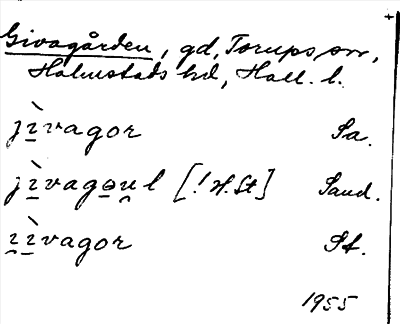 Givagården, gd, Torups sn,
Halmstads hd, Hall. l.
jı̱̀vagor Sa.
jı̱̀vagə̱u̯l [! H.St] Sand.
ı̯ı̱̀vagor St.
1955